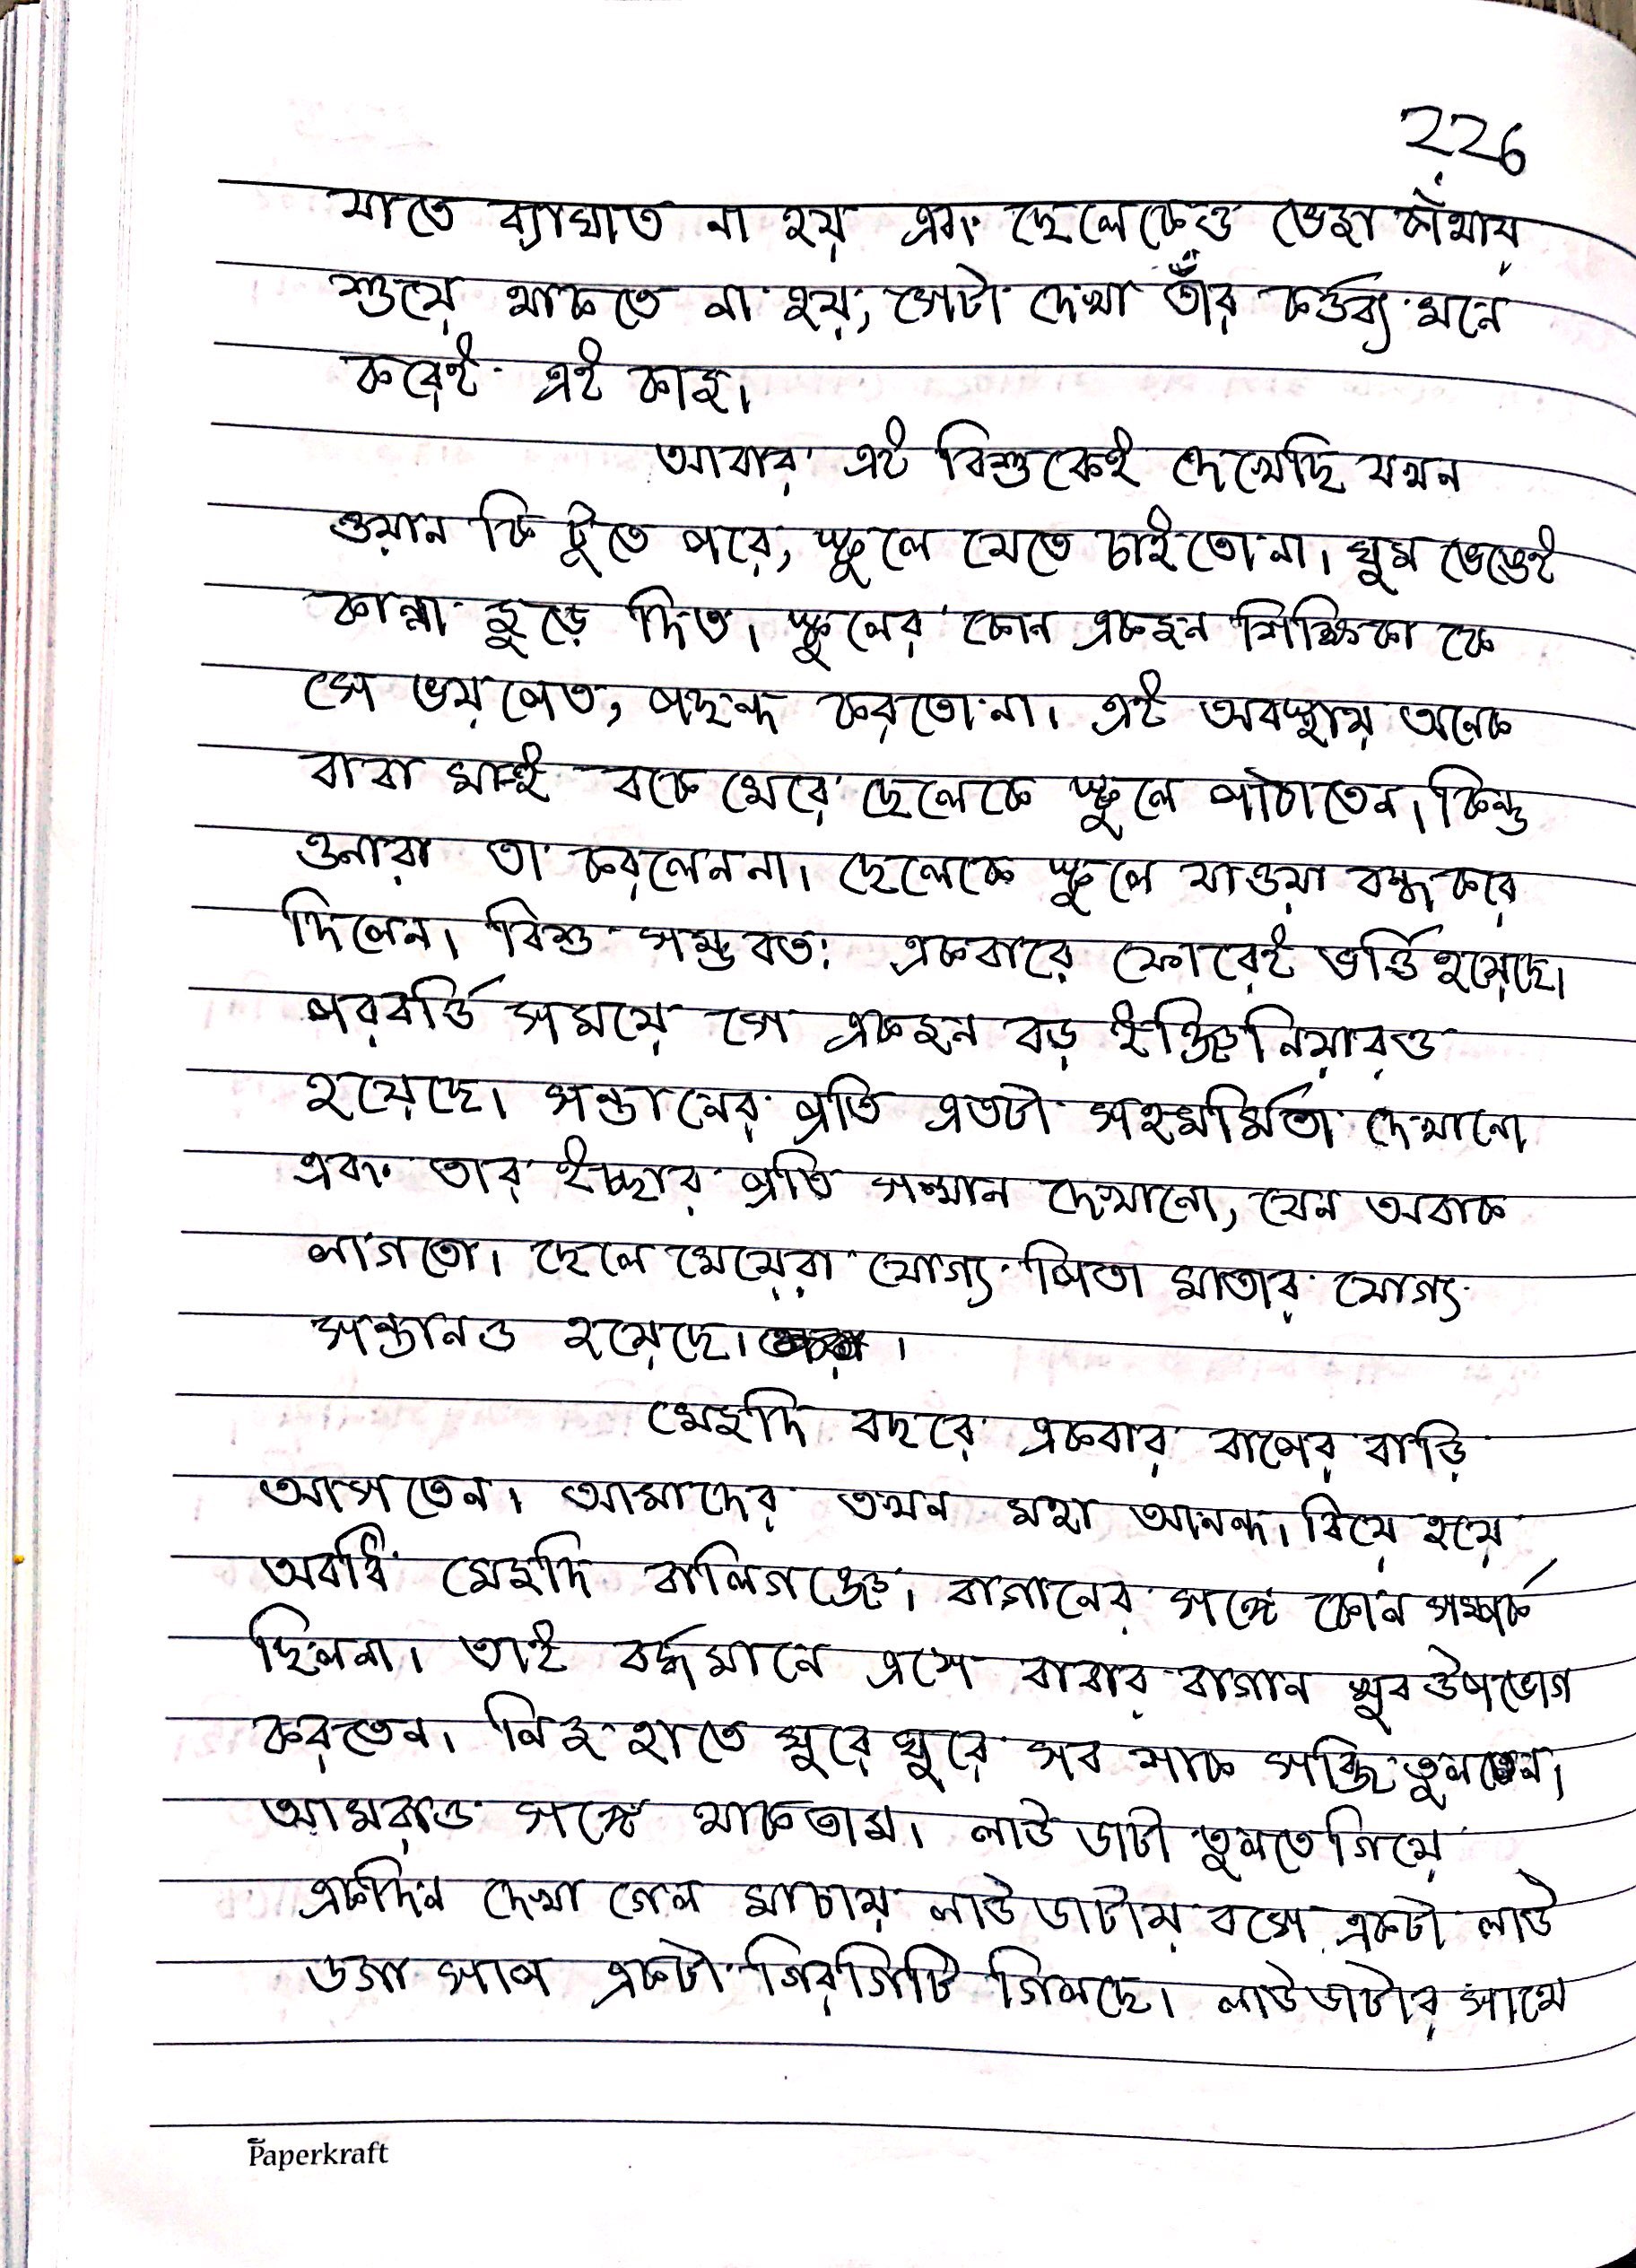 226
যাতে ব্যাঘাত না হয় এবং ছেলেকেও ভেজা কাঁথায়
শুয়ে থাকতে না হয়, সেটা দেখা তাঁর কর্ত্তব্য মনে
করেই এই কাজ।
আবার এই বিশুকেই দেখেছি যখন
ওয়ান কি টুতে পরে, স্কুলে যেতে চাইতো না। ঘুম ভেঙেই
কান্না জুড়ে দিত। স্কুলের কোন একজন শিক্ষিকা কে
সে ভয় পেত, পছন্দ করতো না। এই অবস্থায় অনেক
বাবা মাই বকে মেরে ছেলেকে স্কুলে পাঠাতেন। কিন্তু
ওনারা তা করলেন না। ছেলেকে স্কুলে যাওয়া বন্ধ করে
দিলেন। বিশু সম্ভবত: একবারে ফোরেই ভর্ত্তি হয়েছে।
পরবর্ত্তি সময়ে সে একজন বড় ইঞ্জিনিয়ারও
হয়েছে। সন্তানের প্রতি এতটা সহমর্মিতা দেখানো
এবং তার ইচ্ছার প্রতি সন্মান দেখানো, যেন অবাক
লাগতো। ছেলে মেয়েরা যোগ্য পিতা মাতার যোগ্য
সন্তানও হয়েছে।
মেজদি বছরে একবার বাপের বাড়ি
আসতেন। আমাদের তখন মহা আনন্দ। বিয়ে হয়ে
অবধি মেজদি বালিগঞ্জে। বাগানের সঙ্গে কোন সম্পর্ক
ছিলনা। তাই বর্দ্ধমানে এসে বাবার বাগান খুব উপভোগ
করতেন। নিজ হাতে ঘুরে ঘুরে সব শাক সব্জি তুলতেন।
আমরাও সঙ্গে থাকতাম। লাউ ডাটা তুলতে গিয়ে
একদিন দেখা গেল মাচায় লাউ ডাটায় বসে একটা লাউ
ডগা সাপ একটা গিরগিটি গিলছে। লাউডাটার সাথে
Paperkraft